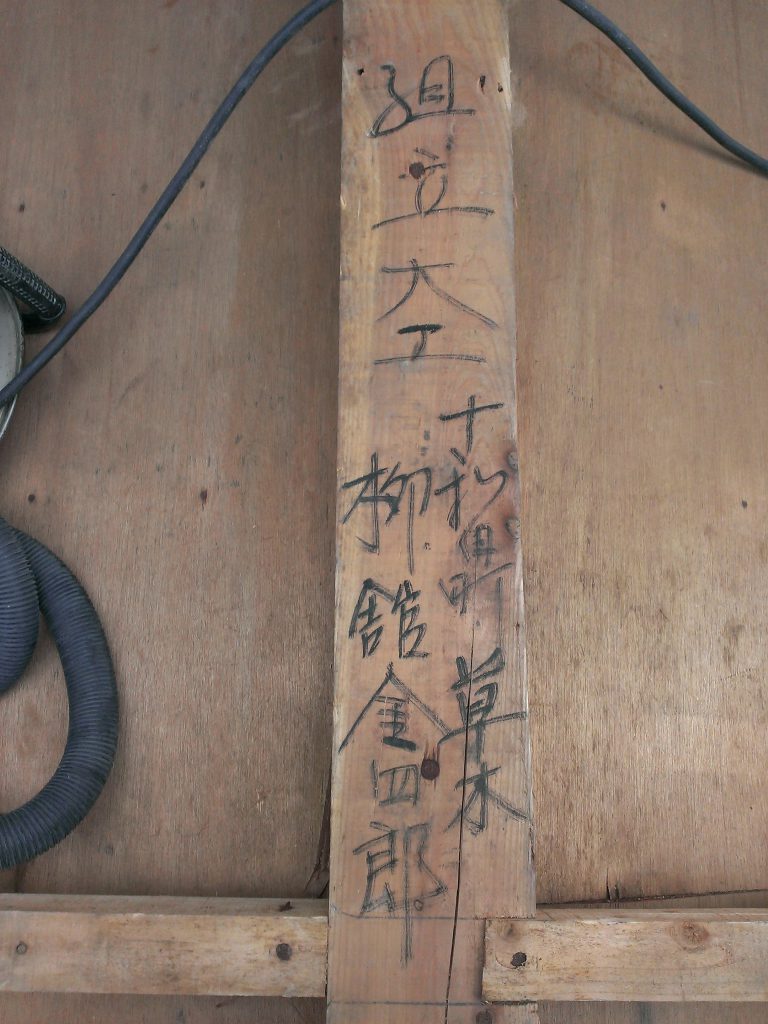 組立大工
十和田町 草木
柳舘金四郎